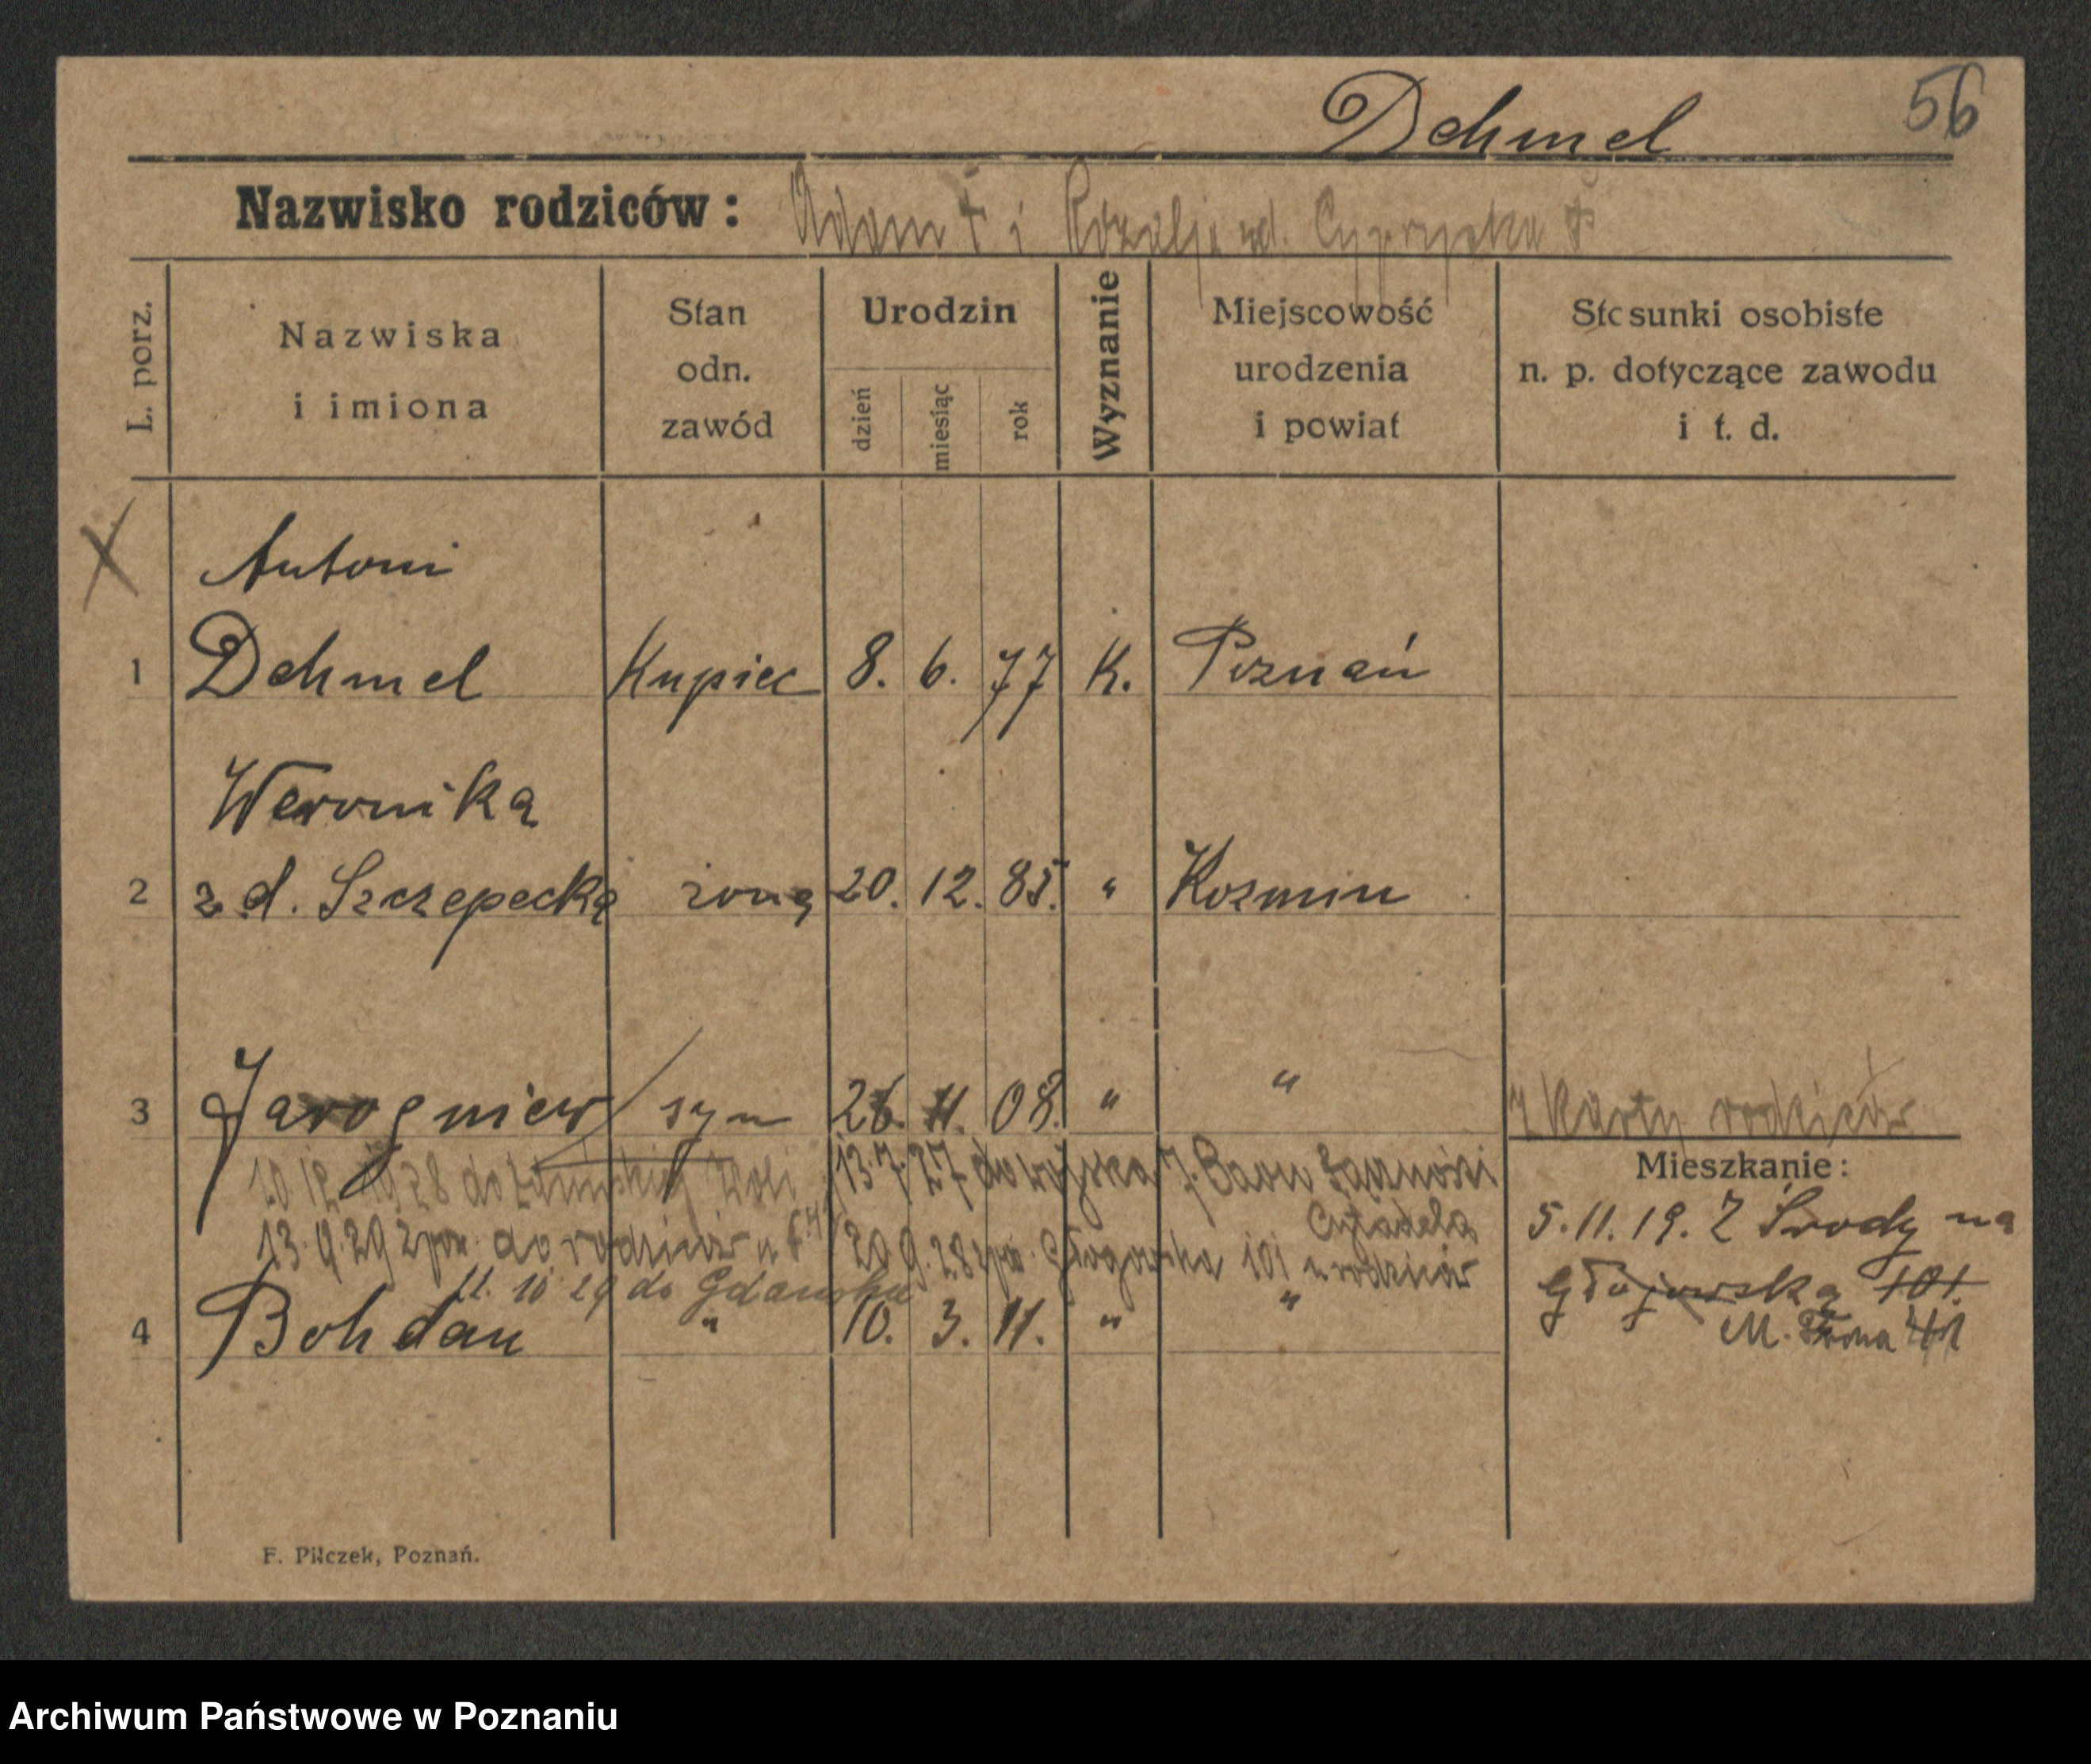 Dehmel 56
Nazwisko rodziców: Adam † i Rozalja zd. †
L. porz.
Nazwiska
i imiona
Stan
odn.
zawód
Urodzin
dzień
miesiąc
rok
Wyznanie
Miejscowość
urodzenia
i powiat
Stosunki osobiste
n. p. dotyczące zawodu
i t. d.
X
Antoni
1 Dehmel Kupiec 8. 6. 77 K. Poznań
Weronika
2 z d. Szczepecka żona 20. 12. 85. " Kozmin
3 Jarogniew syn 26. 11. 08. " " Karty rodziców
10 12 1928 do Woli 13.7.27 do wojska 7. Baon Łączności
Cytadela
13.9.29 zpow. do rodziców 20.9.28 zpow. Głogowska 101 u rodziców
11. 10 29 do Gdańska
4 Bohdan " 10. 3. 11. " "
Mieszkanie:
5.11.19. Z Środy na
Głogowską 101.
M. Focha 41
F. Pilczek, Poznań.
Archiwum Państwowe w Poznaniu